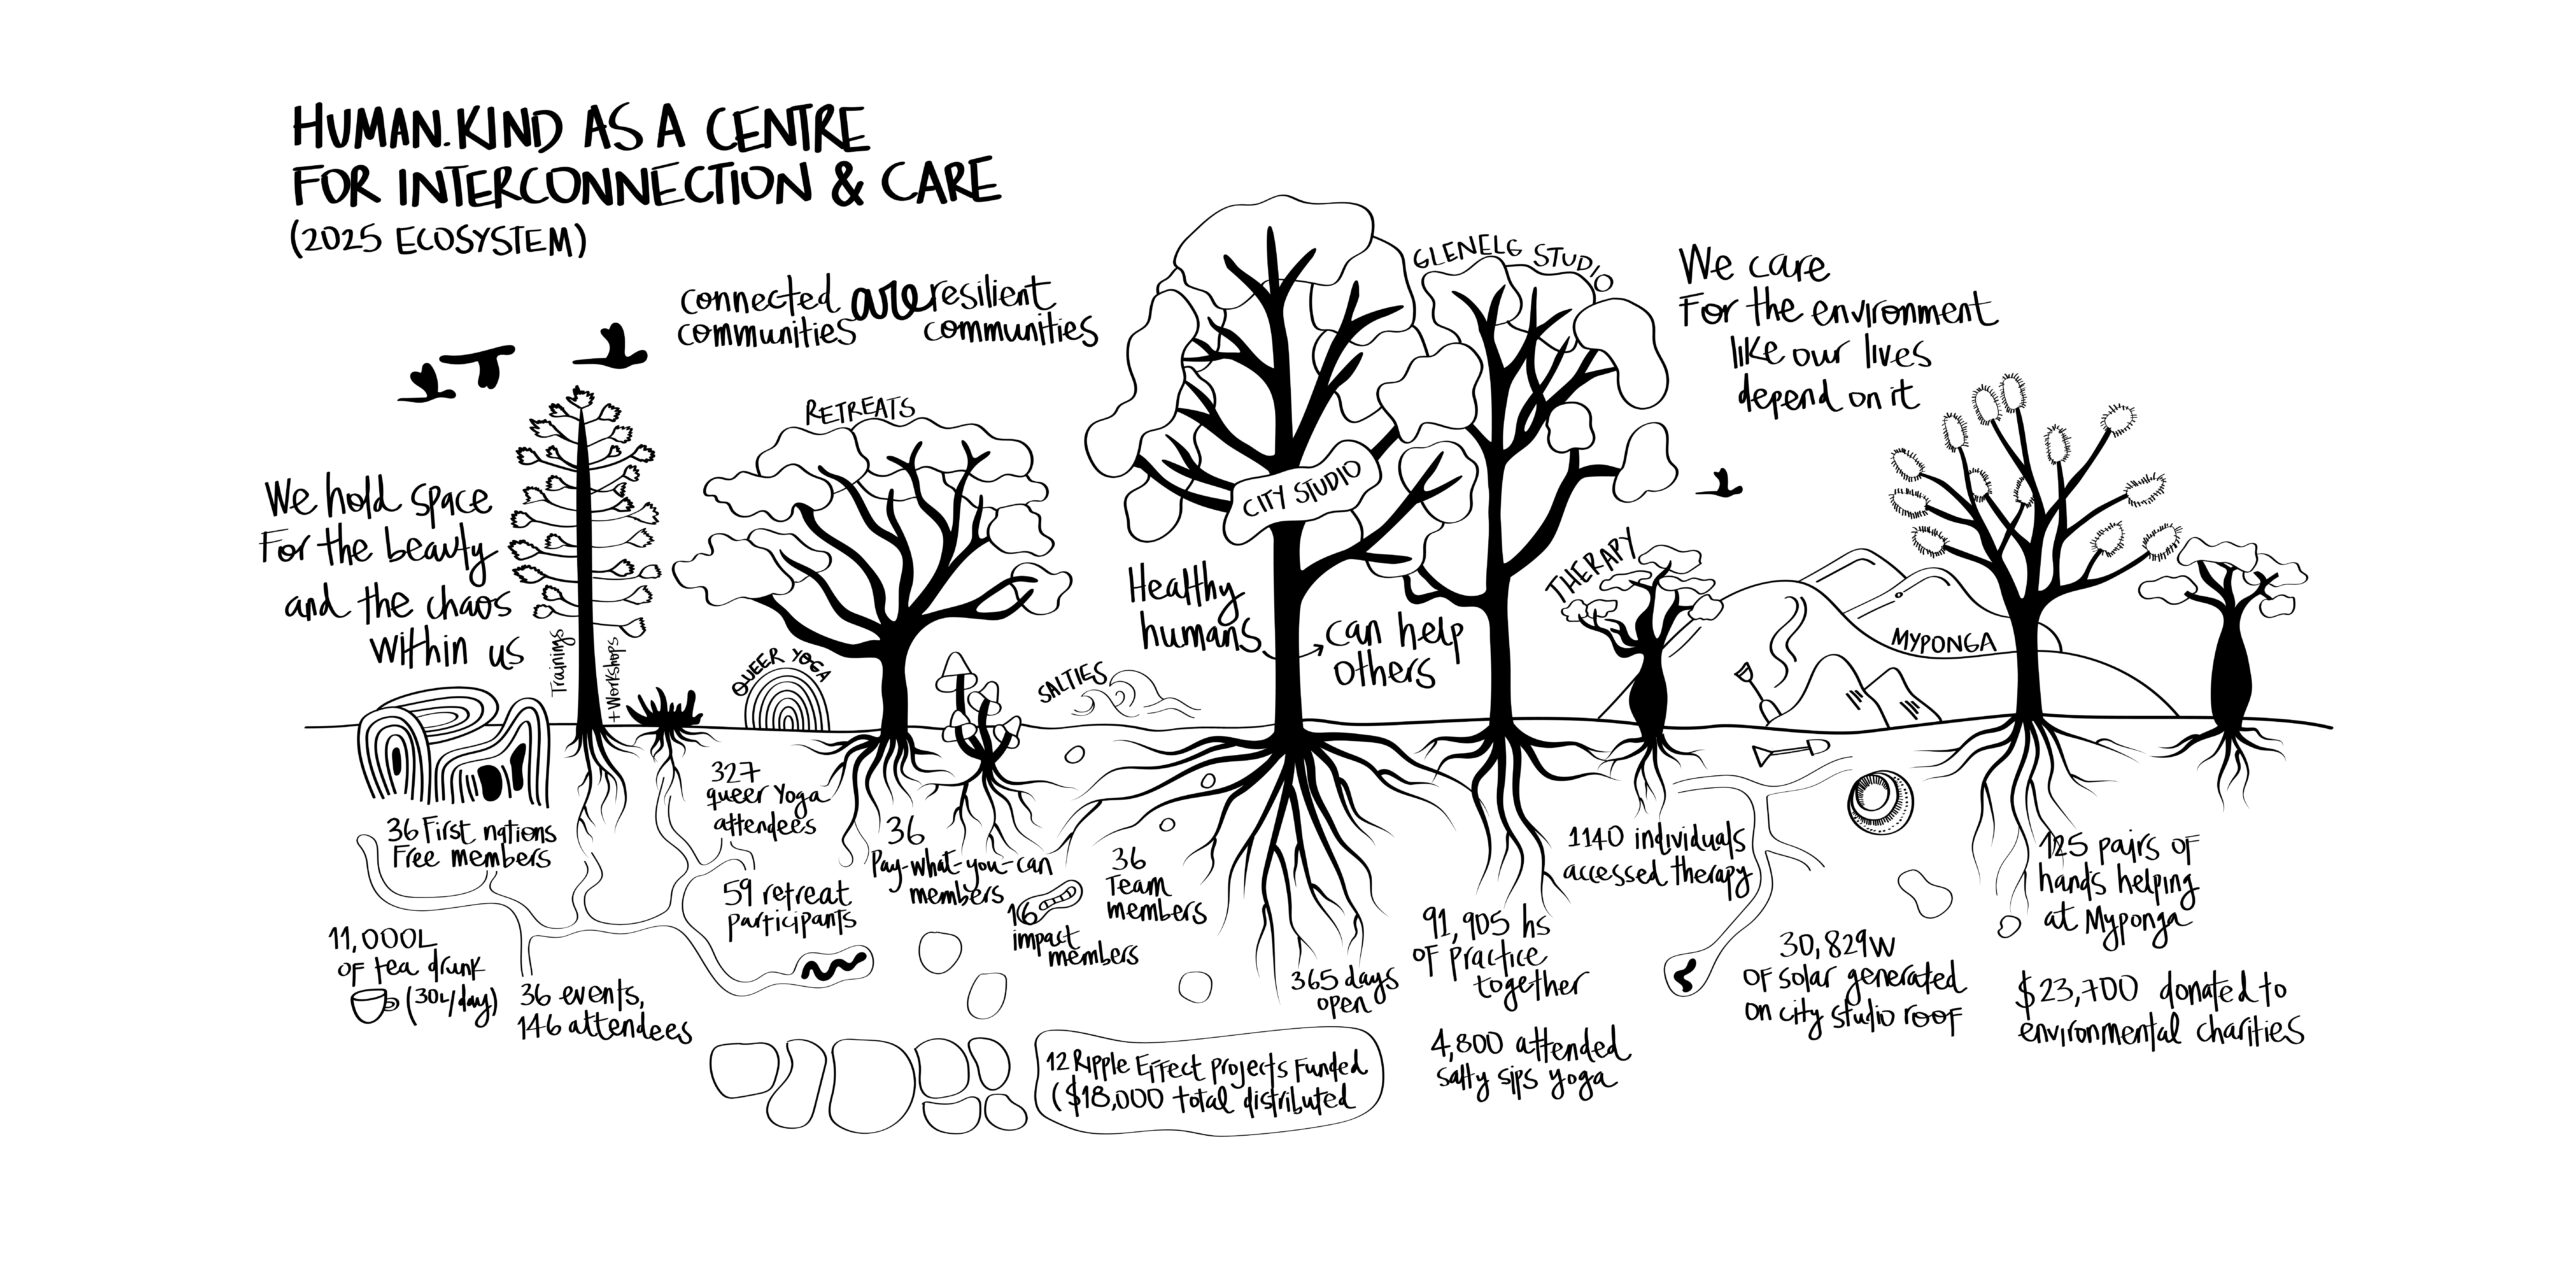 HUMAN.KIND AS A CENTRE
FOR INTERCONNECTION & CARE
(2025 ECOSYSTEM)
connected are resilient
communities communities
We hold space
For the beauty
and the chaos
within us
Trainings
+ Workshops
RETREATS
QUEER YOGA
SALTIES
CITY STUDIO
Healthy
humans
can help
others
GLENELG STUDIO
We care
For the environment
like our lives
depend on it
THERAPY
MYPONGA
36 First nations
Free members
11,000L
of tea drunk
(30L/day)
36 events,
146 attendees
327
queer yoga
attendees
59 retreat
participants
36
Pay-what-you-can
members
16
impact
members
36
Team
members
12 Ripple Effect projects Funded
($18,000 total distributed
365 days
open
91,905 hs
of practice
together
4,800 attended
salty sips yoga
1140 individuals
accessed therapy
30,829W
of solar generated
on city studio roof
125 pairs of
hands helping
at Myponga
$23,700 donated to
environmental charities